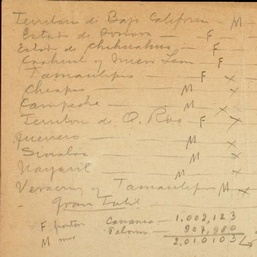 Territorio de Baja California M
Estado de Sonora — F
Estado de Chihuahua — F
Coahuila y Nuevo Leon — F
Tamaulipas — F X
Chiapas — M X
Campeche — M X
Territorio de Q. Roo — F X
Guerrero — M
Sinaloa — M X
Nayarit — M X
Veracruz y Tamaulipas M X
Gran Total —
F Cananea — 1.002,123
M Palomas — 907,980
2.010,103